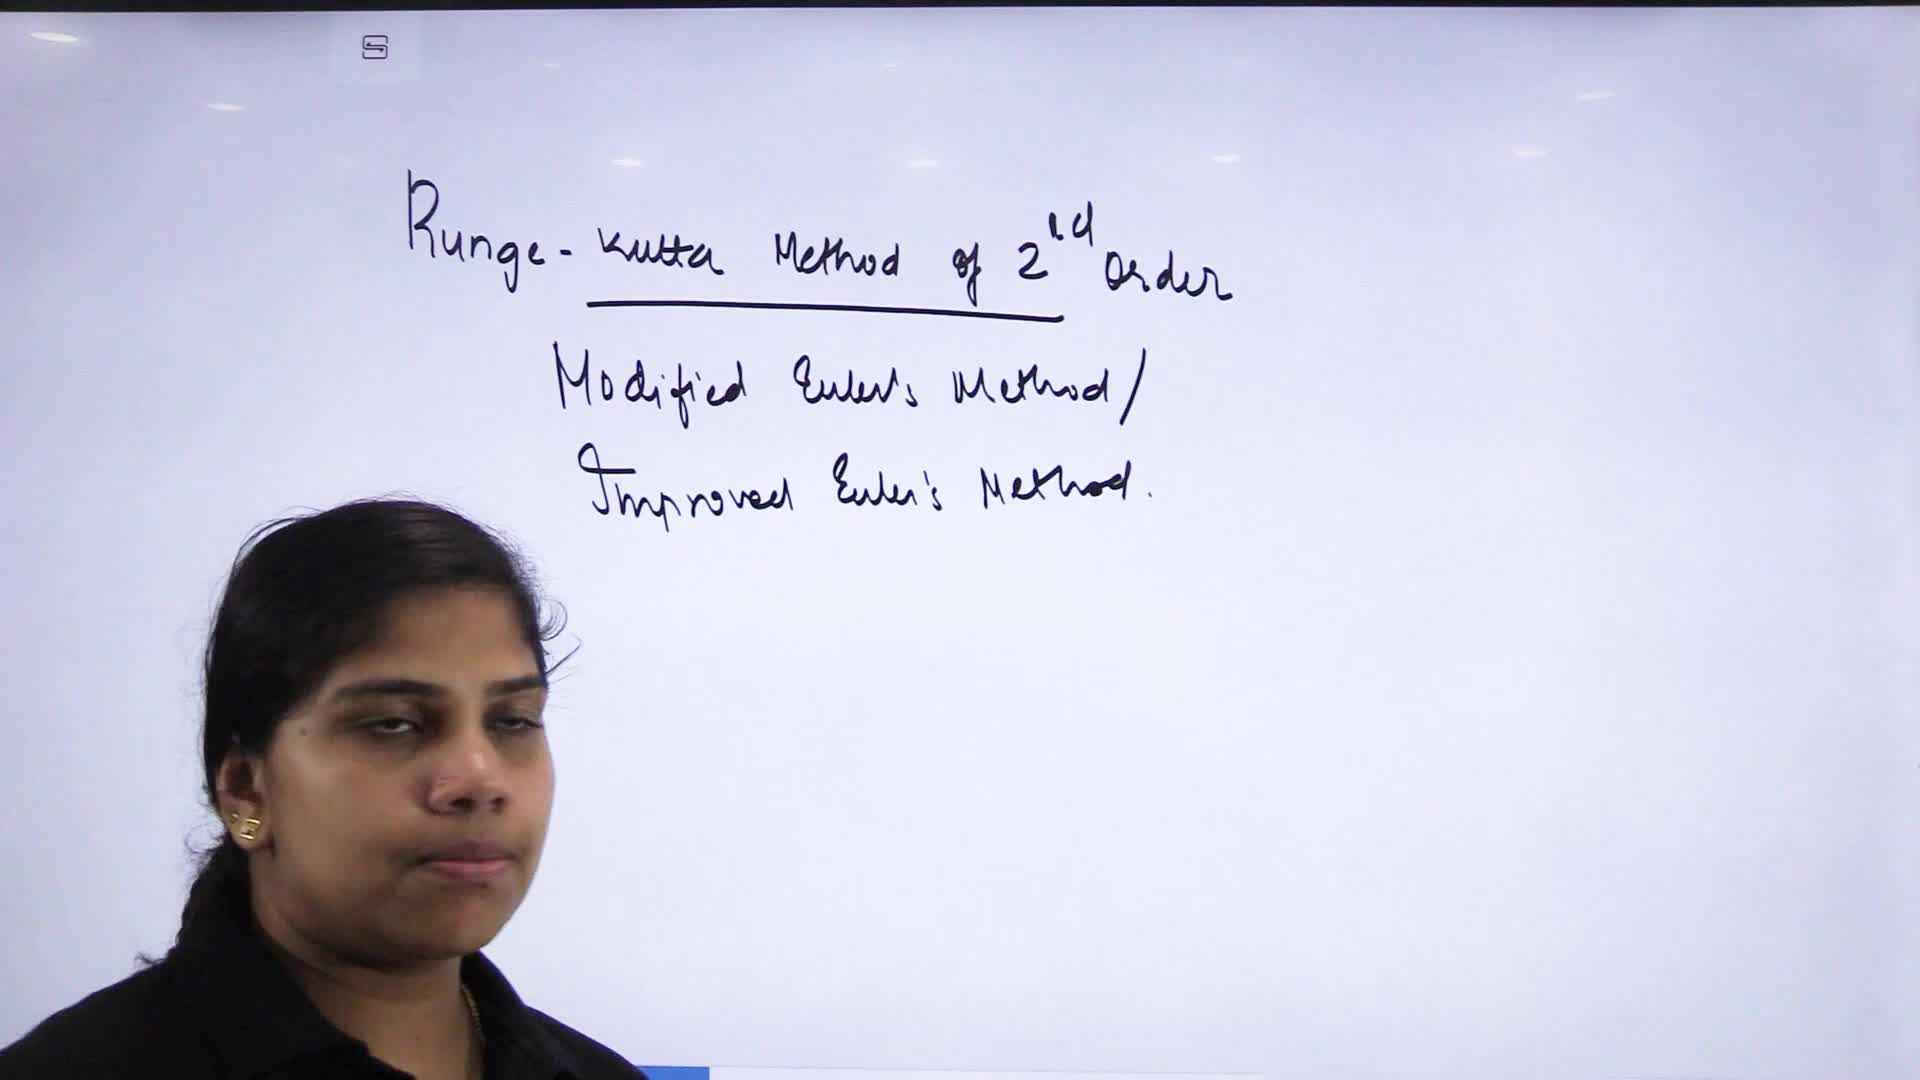 Runge-Kutta Method of 2nd Order
Modified Euler's Method/
Improved Euler's Method.